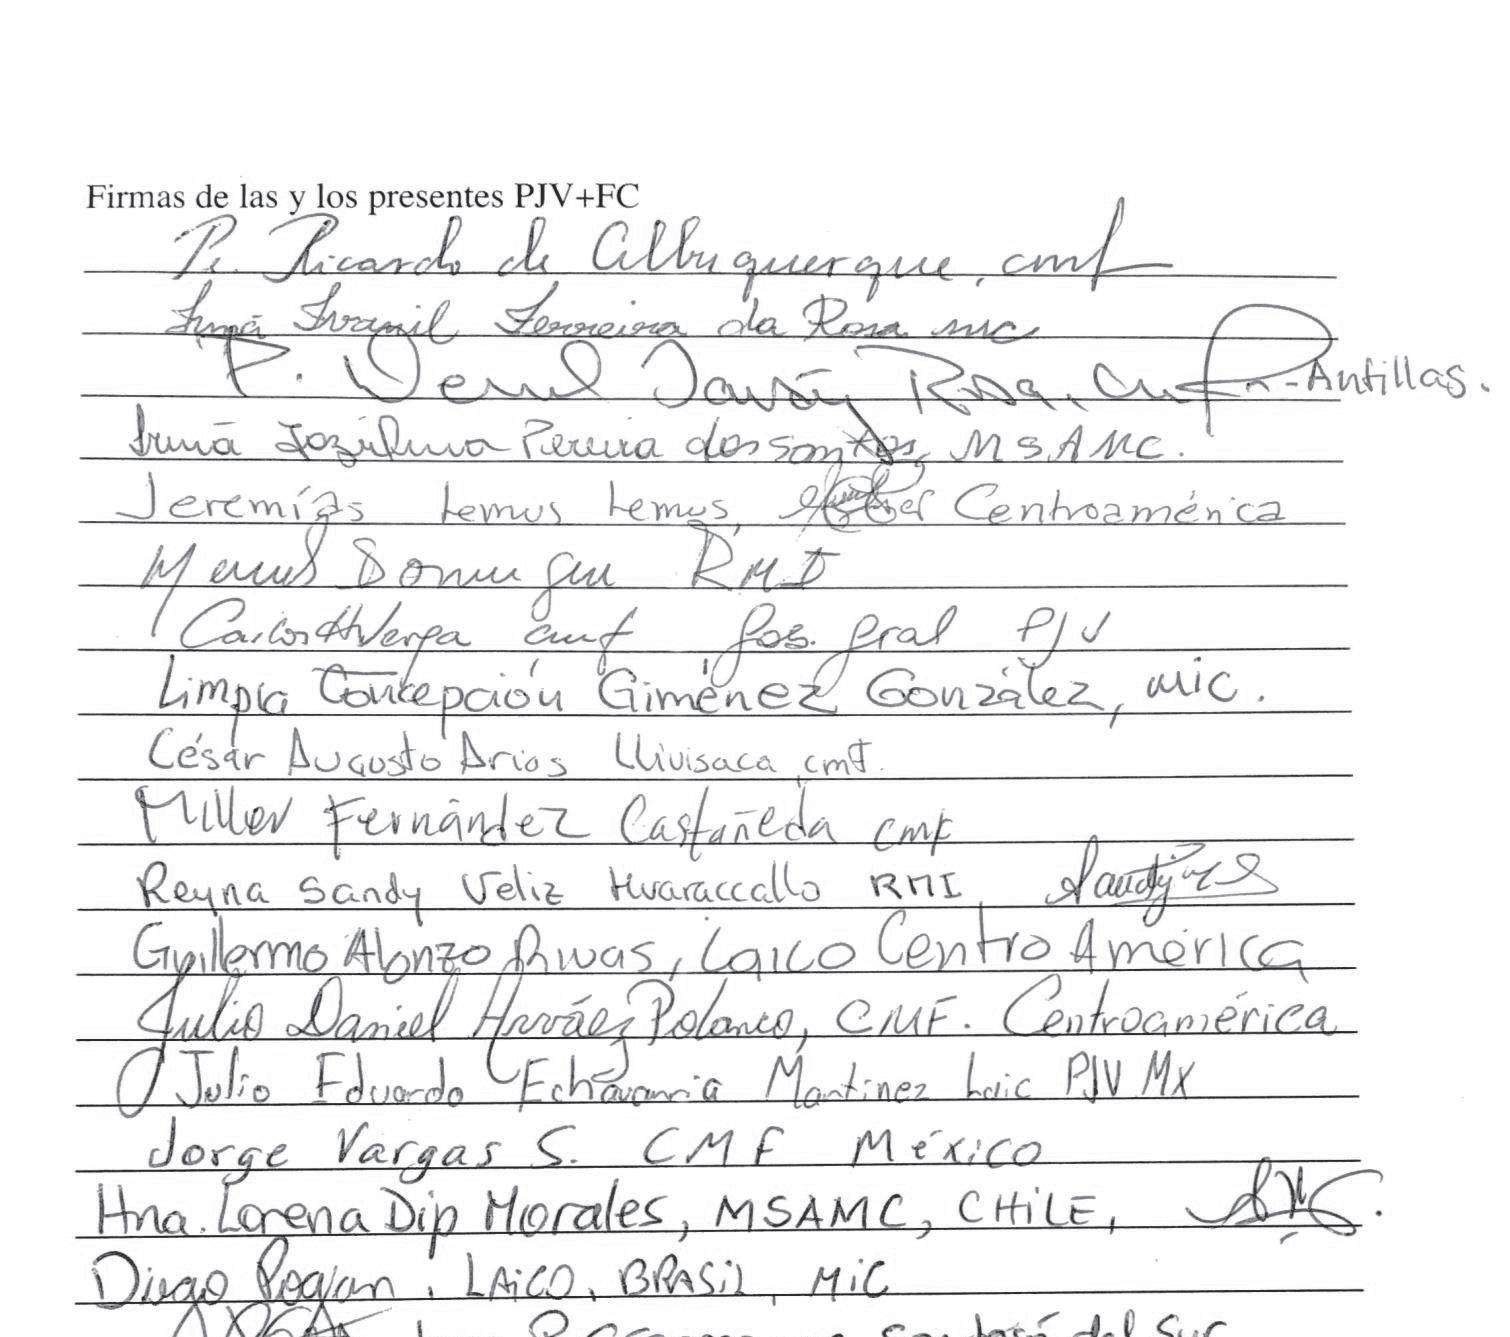 Firmas de las y los presentes PJV+FC
Pe. Ricardo de Albuquerque, cmf
Irmã Ivanil Ferreira da Rosa mc
P. Javán Rosa, cmf - Antillas.
Irmã Pereira dos Santos, MSAMC.
Jeremías Lemus Lemus, Centroamérica
RMI
Carlos A Verga cmf Pos. Gral PJV
Limpia Concepción Giménez González, mic.
César Augusto Arias Llivisaca, cmf.
Miller Fernández Castañeda CMF
Reyna Sandy Veliz Huaraccallo RMI,
Guillermo Alonzo Rivas, Laico Centro América
Julio Daniel Polanco, CMF. Centroamérica
Julio Eduardo Echavarria Martinez Laic PJV MX
Jorge Vargas S. CMF México
Hna. Lorena Dip Morales, MSAMC, CHiLE,
LAiCO, BRASiL, MiC
del Sur